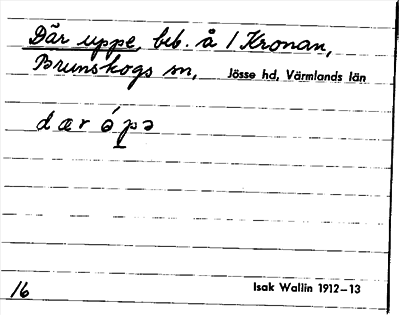 Där uppe, beb. å 1 Kronan,
Brunskogs sn, Jösse hd, Värmlands län
dær ǿpə
16 Isak Wallin 1912-13